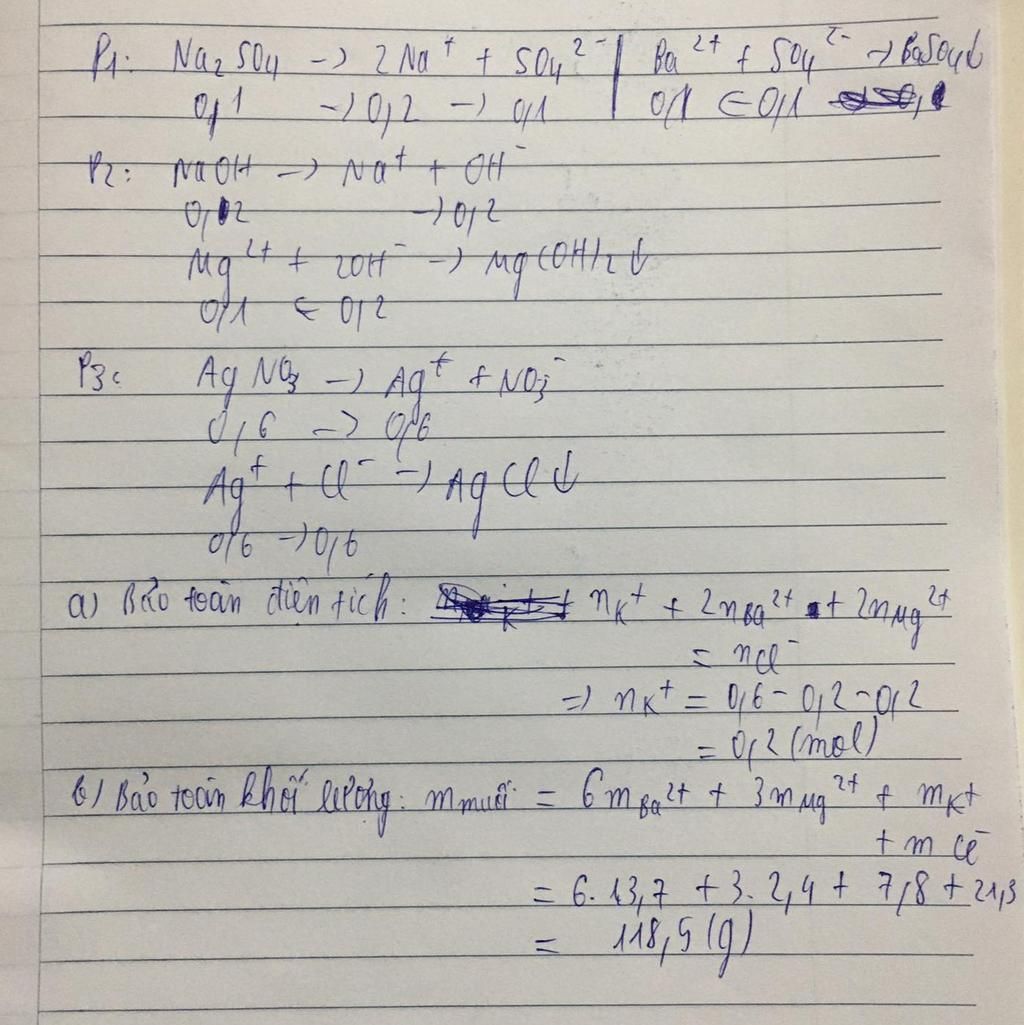 P1: Na2SO4 → 2Na⁺ + SO4²⁻ | Ba²⁺ + SO4²⁻ → BaSO4↓
0,1 → 0,2 → 0,1 | 0,1 ← 0,1
P2: NaOH → Na⁺ + OH⁻
0,2 → 0,2
Mg²⁺ + 2OH⁻ → Mg(OH)2↓
0,1 ← 0,2
P3: AgNO3 → Ag⁺ + NO3⁻
0,6 → 0,6
Ag⁺ + Cl⁻ → AgCl↓
0,6 → 0,6
a) Bảo toàn điện tích: nK⁺ + 2nBa²⁺ + 2nMg²⁺
= nCl⁻
=) nK⁺ = 0,6 - 0,2 - 0,2
= 0,2 (mol)
b) Bảo toàn khối lượng: m muối = 6mBa²⁺ + 3mMg²⁺ + mK⁺
+ mCl⁻
= 6. 13,7 + 3. 2,4 + 7,8 + 21,3
= 118,5 (g)